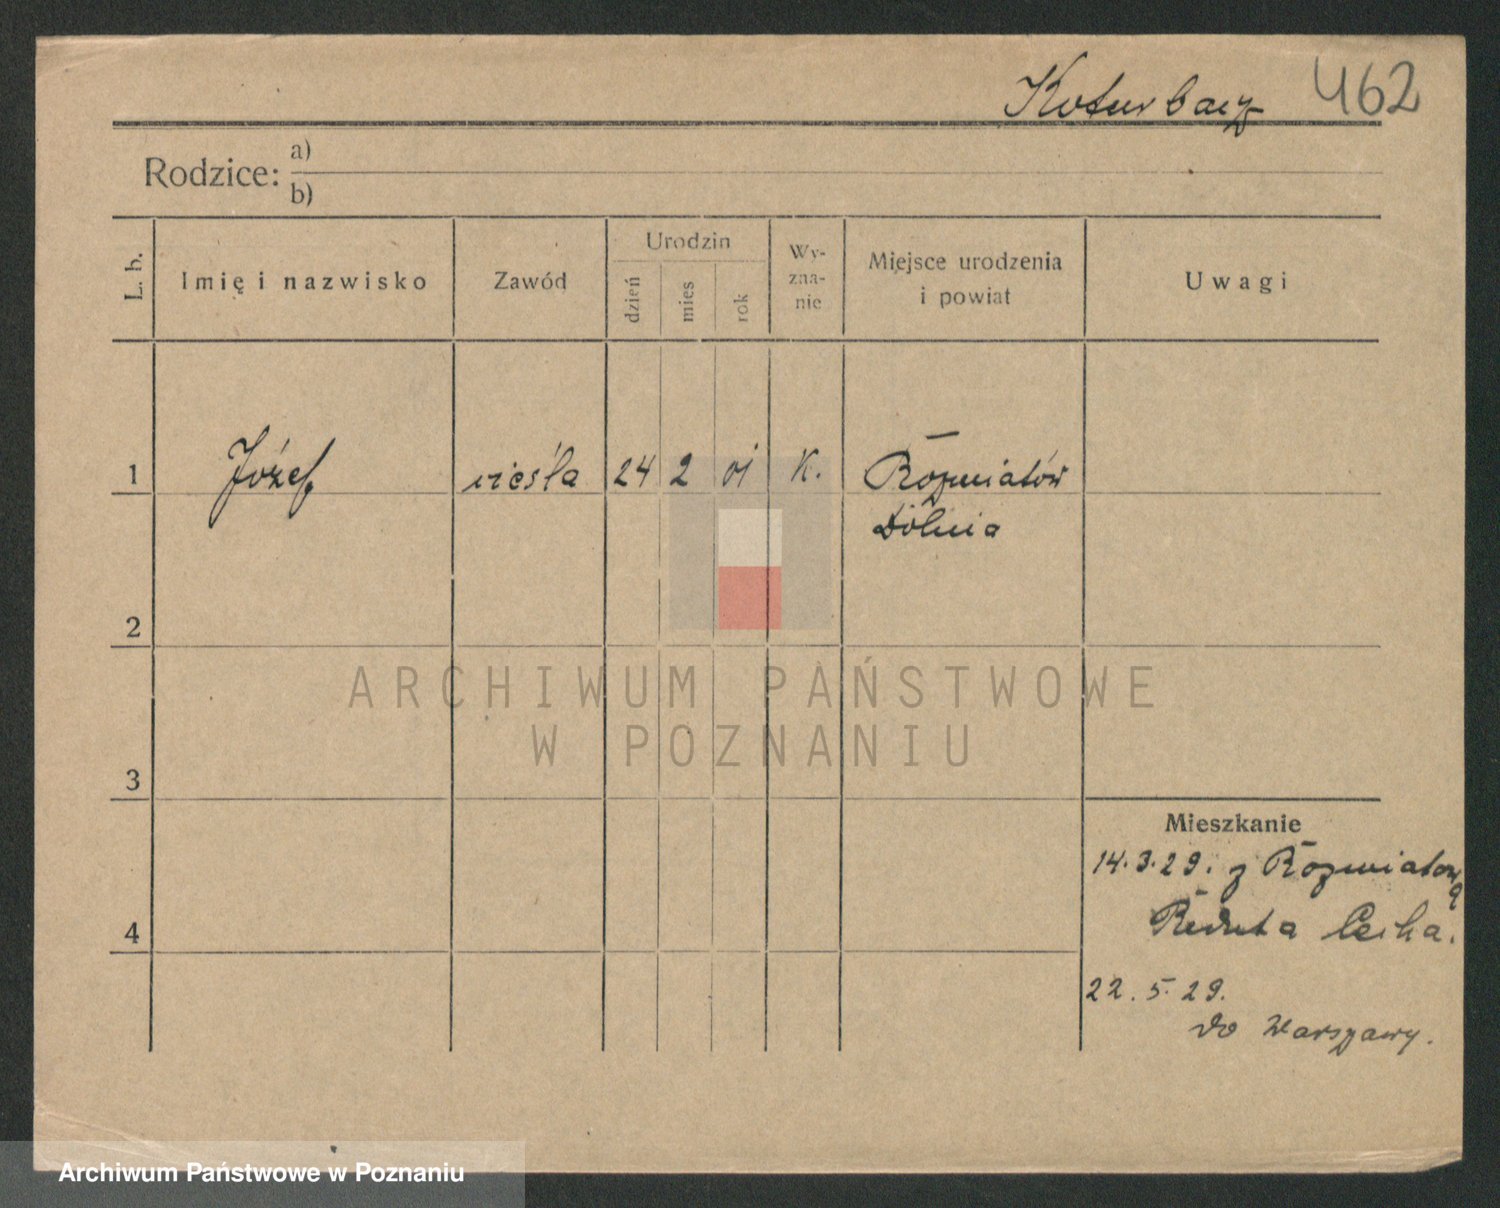 Koturbacz 462
Rodzice: a)
b)
L. b. Imię i nazwisko Zawód Urodzin dzień mies rok Wyznanie Miejsce urodzenia i powiat Uwagi
1 Józef cieśla 24 2 01 K. Rozmiatów
Dolnia
2
3
Mieszkanie
14.3.29. z Rozmiatowa
4 Reduta
22.5.29.
do Warszawy.
ARCHIWUM PAŃSTWOWE
W POZNANIU
Archiwum Państwowe w Poznaniu